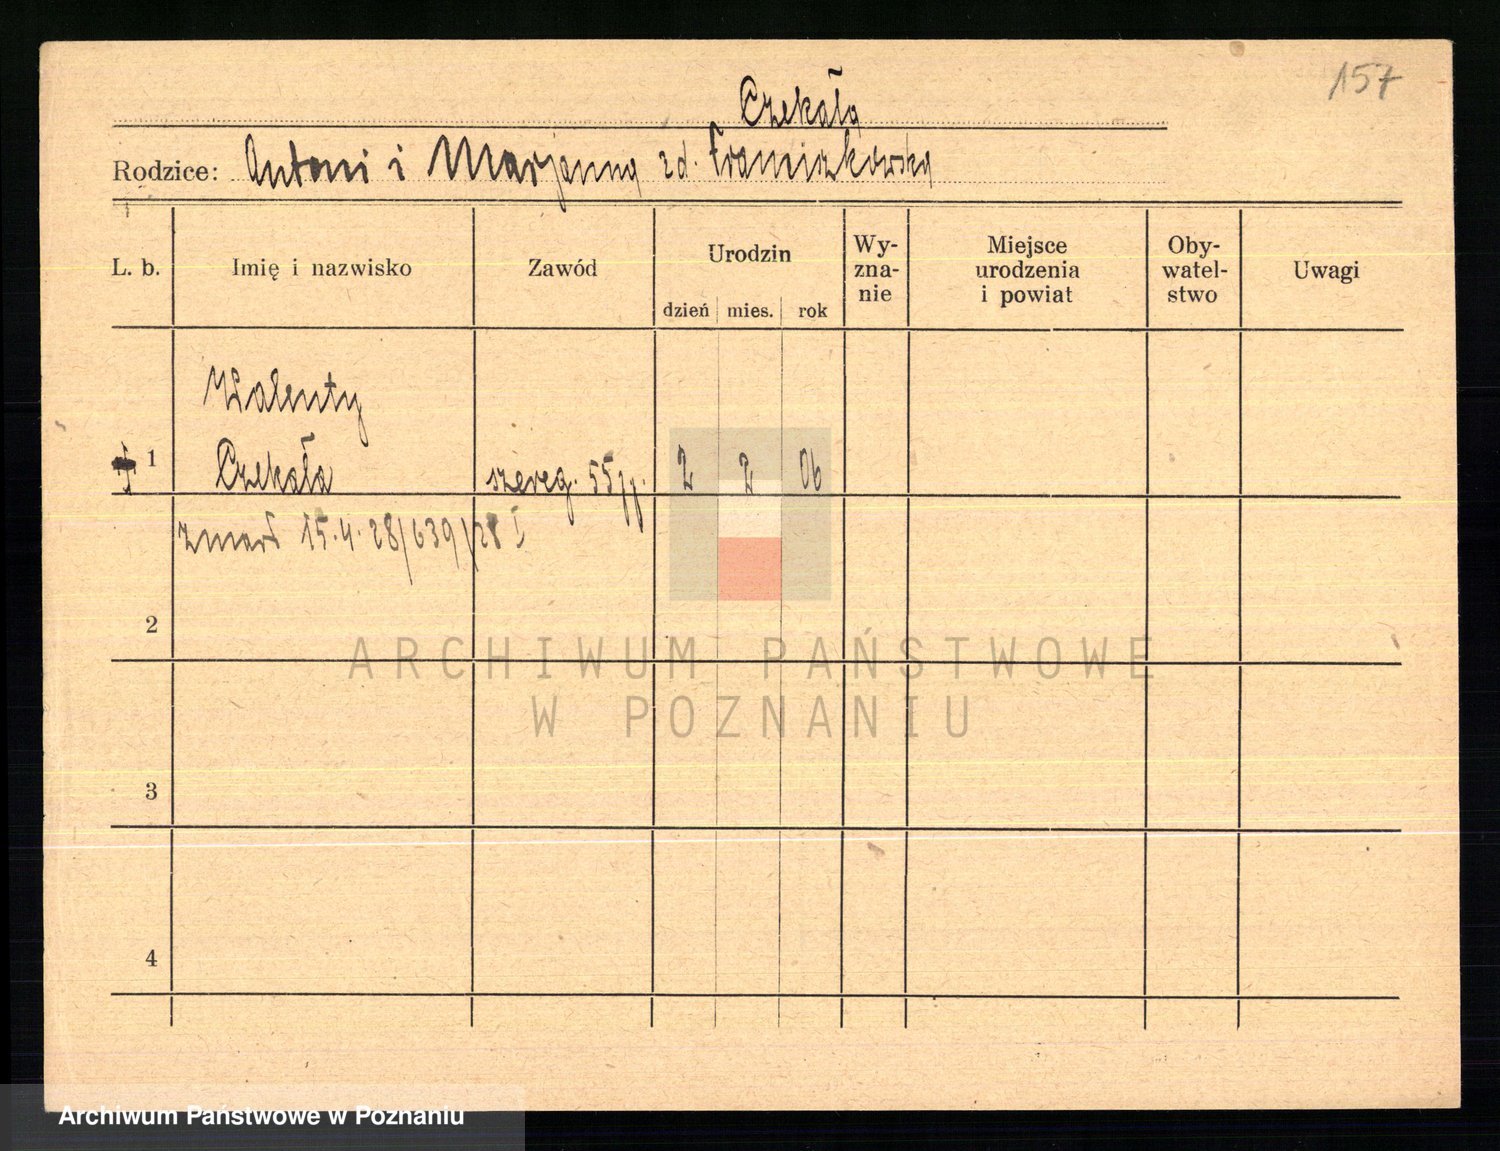 157
Czekała
Rodzice: Antoni i Marjanna zd. Franciszkowska
L. b.
Imię i nazwisko
Zawód
Urodzin
dzień mies. rok
Wy-
zna-
nie
Miejsce
urodzenia
i powiat
Oby-
watel-
stwo
Uwagi
Walenty
1 Czekała szereg. 55 pp. 2 2 06
zmarł 15.4.28/639/28 I
2
3
4
ARCHIWUM PAŃSTWOWE
W POZNANIU
Archiwum Państwowe w Poznaniu